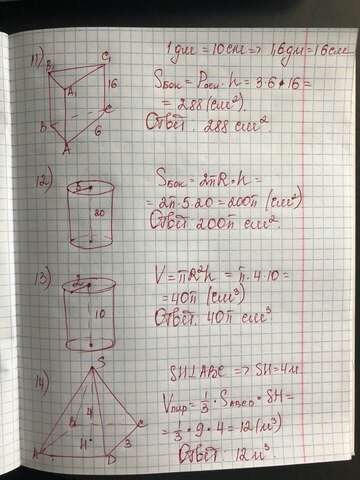 11)
1 дм = 10 см => 1,6 дм = 16 см
B₁ C₁ A₁ 16 B C 6 A
Sбок = Pосн · h = 3·6·16 =
= 288 (см²)
Ответ: 288 см².
12)
5 20
Sбок = 2πR·h =
= 2π·5·20 = 200π (см²)
Ответ: 200π см².
13)
2 10
V = πR²h = π·4·10 =
= 40π (см³)
Ответ: 40π см³
14)
S 4 B C H 3 A D
SH⊥ABC => SH = 4м
Vпир = 1/3 · SABCD · SH =
= 1/3 · 9 · 4 = 12 (м³)
Ответ: 12 м³